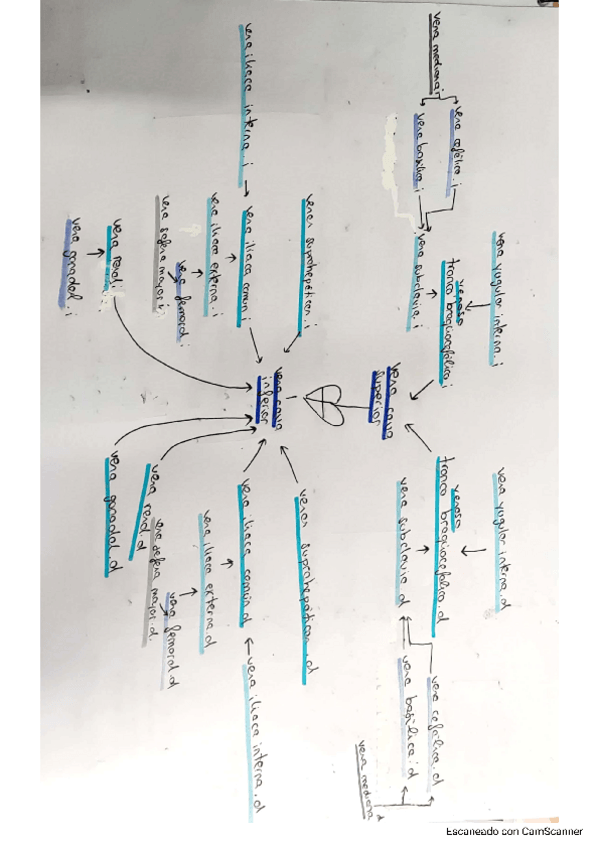 vena yugular interna.i
vena yugular interna.d
vena mediana i
vena cefálica.i
vena basílica i
vena subclavia.i
tronco braquiocefálico.i
venoso
tronco braquiocefálico.d
venoso
vena subclavia d
vena cefálica.d
vena basílica.d
vena mediana d
vena cava
superior
venas suprahepáticas.i
venas suprahepáticas.d
vena cava
inferior
vena iliaca interna.i
vena iliaca común.i
vena iliaca externa.i
vena femoral i
vena safena mayor i
vena iliaca común.d
vena iliaca interna.d
vena iliaca externa.d
vena femoral.d
vena safena mayor.d.
vena renal.i
vena gonadal.i
vena renal.d
vena gonadal.d
Escaneado con CamScanner